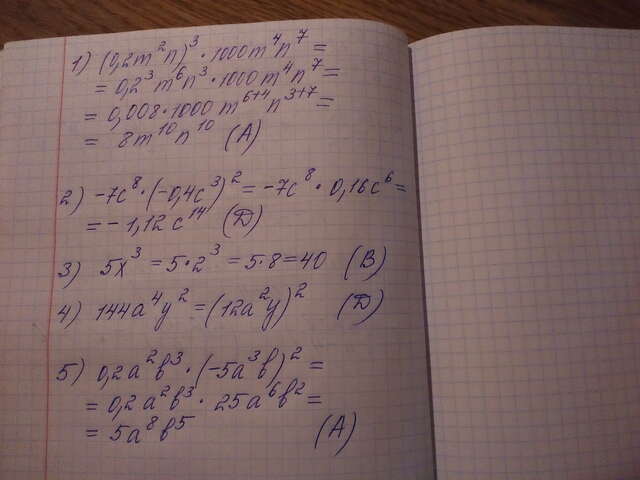 1) (0,2m²n)³ · 1000m⁴n⁷ =
= 0,2³ m⁶n³ · 1000m⁴n⁷ =
= 0,008 · 1000 m⁶⁺⁴n³⁺⁷ =
= 8m¹⁰n¹⁰ (A)
2) -7c⁸ · (-0,4c³)² = -7c⁸ · 0,16c⁶ =
= -1,12c¹⁴ (D)
3) 5x³ = 5·2³ = 5·8 = 40 (B)
4) 144a⁴y² = (12a²y)² (D)
5) 0,2a²b³ · (-5a³b)² =
= 0,2a²b³ · 25a⁶b² =
= 5a⁸b⁵ (A)